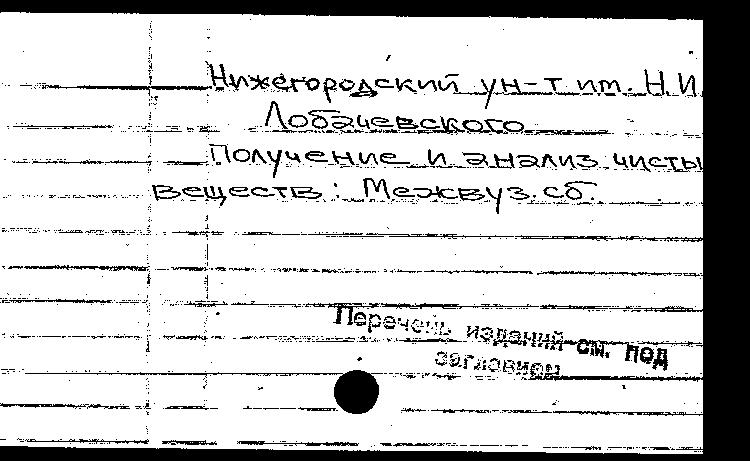 Нижегородский ун-т им. Н.И.
Лобачевского
Получение и анализ чисты
веществ: Межвуз. сб.
Перечень изданий см. под
заглавием